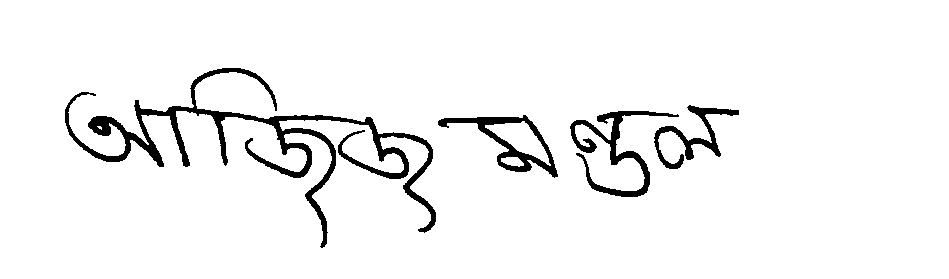 আজিজ মণ্ডল